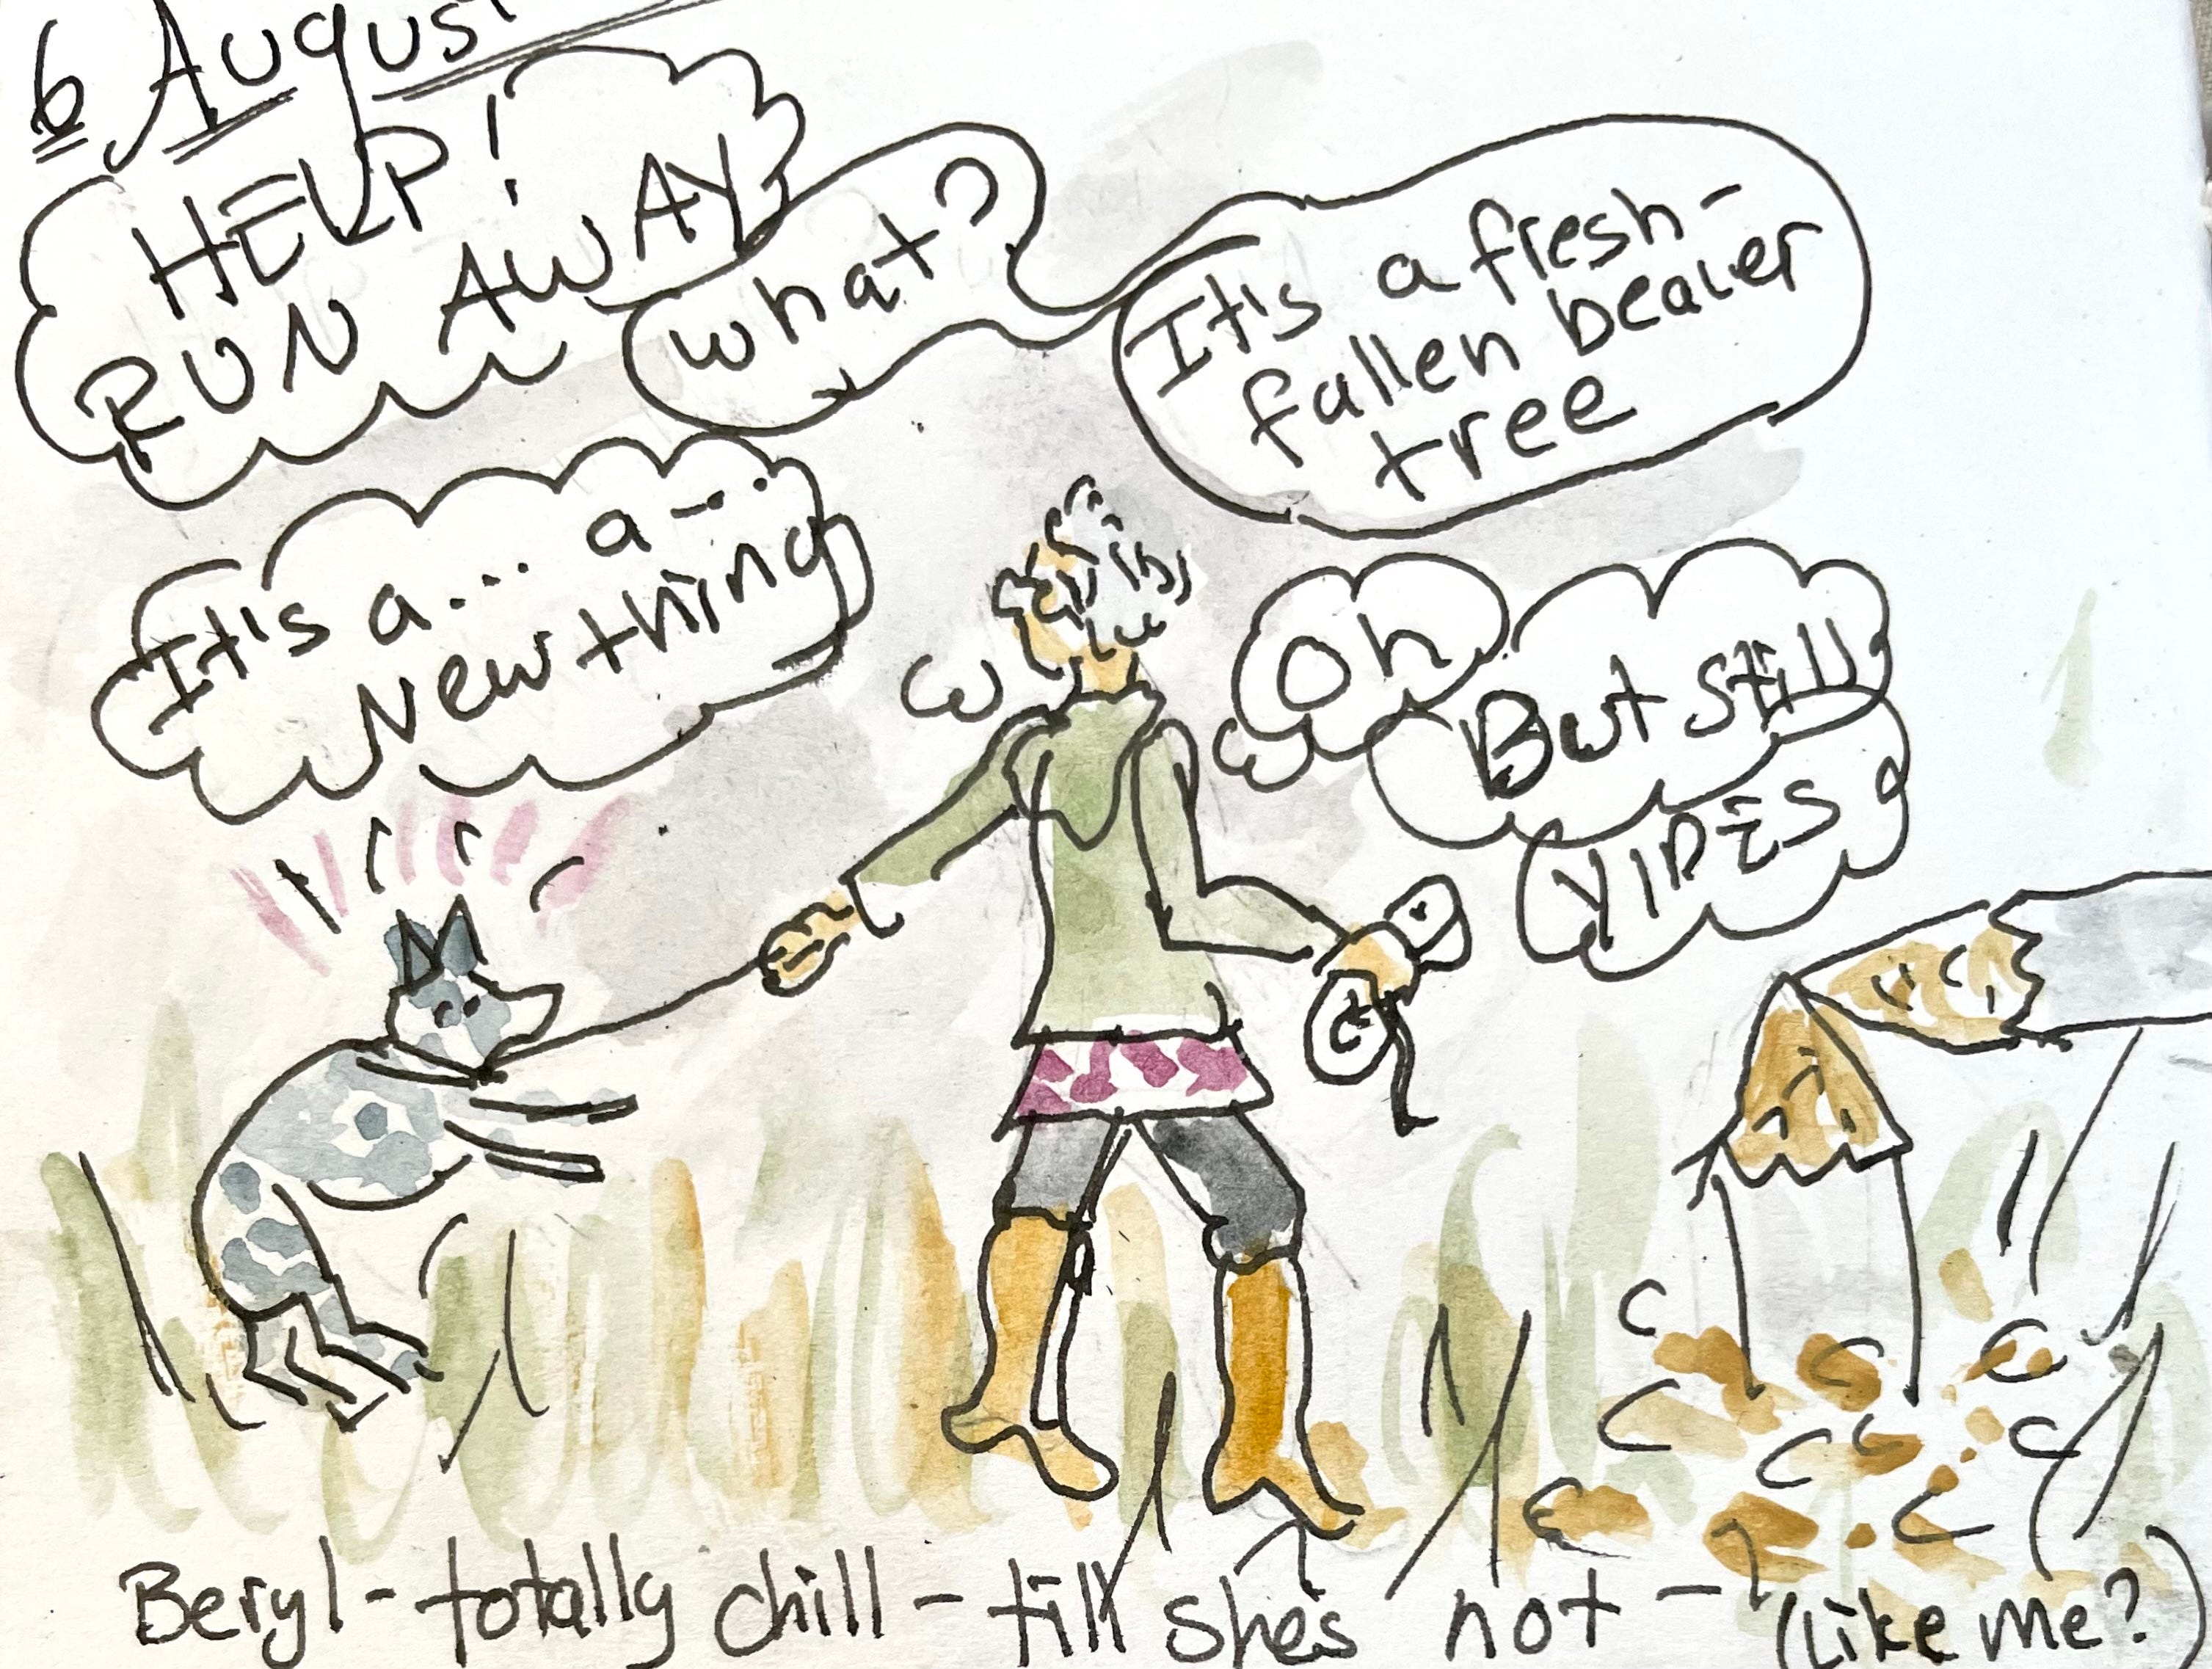 6 August
HELP!
RUN AWAY
what?
It's a fresh-
fallen beaver
tree
It's a... a...
New thing
Oh
But still
YIPES
Beryl - totally chill - till she's not - (Like me?)